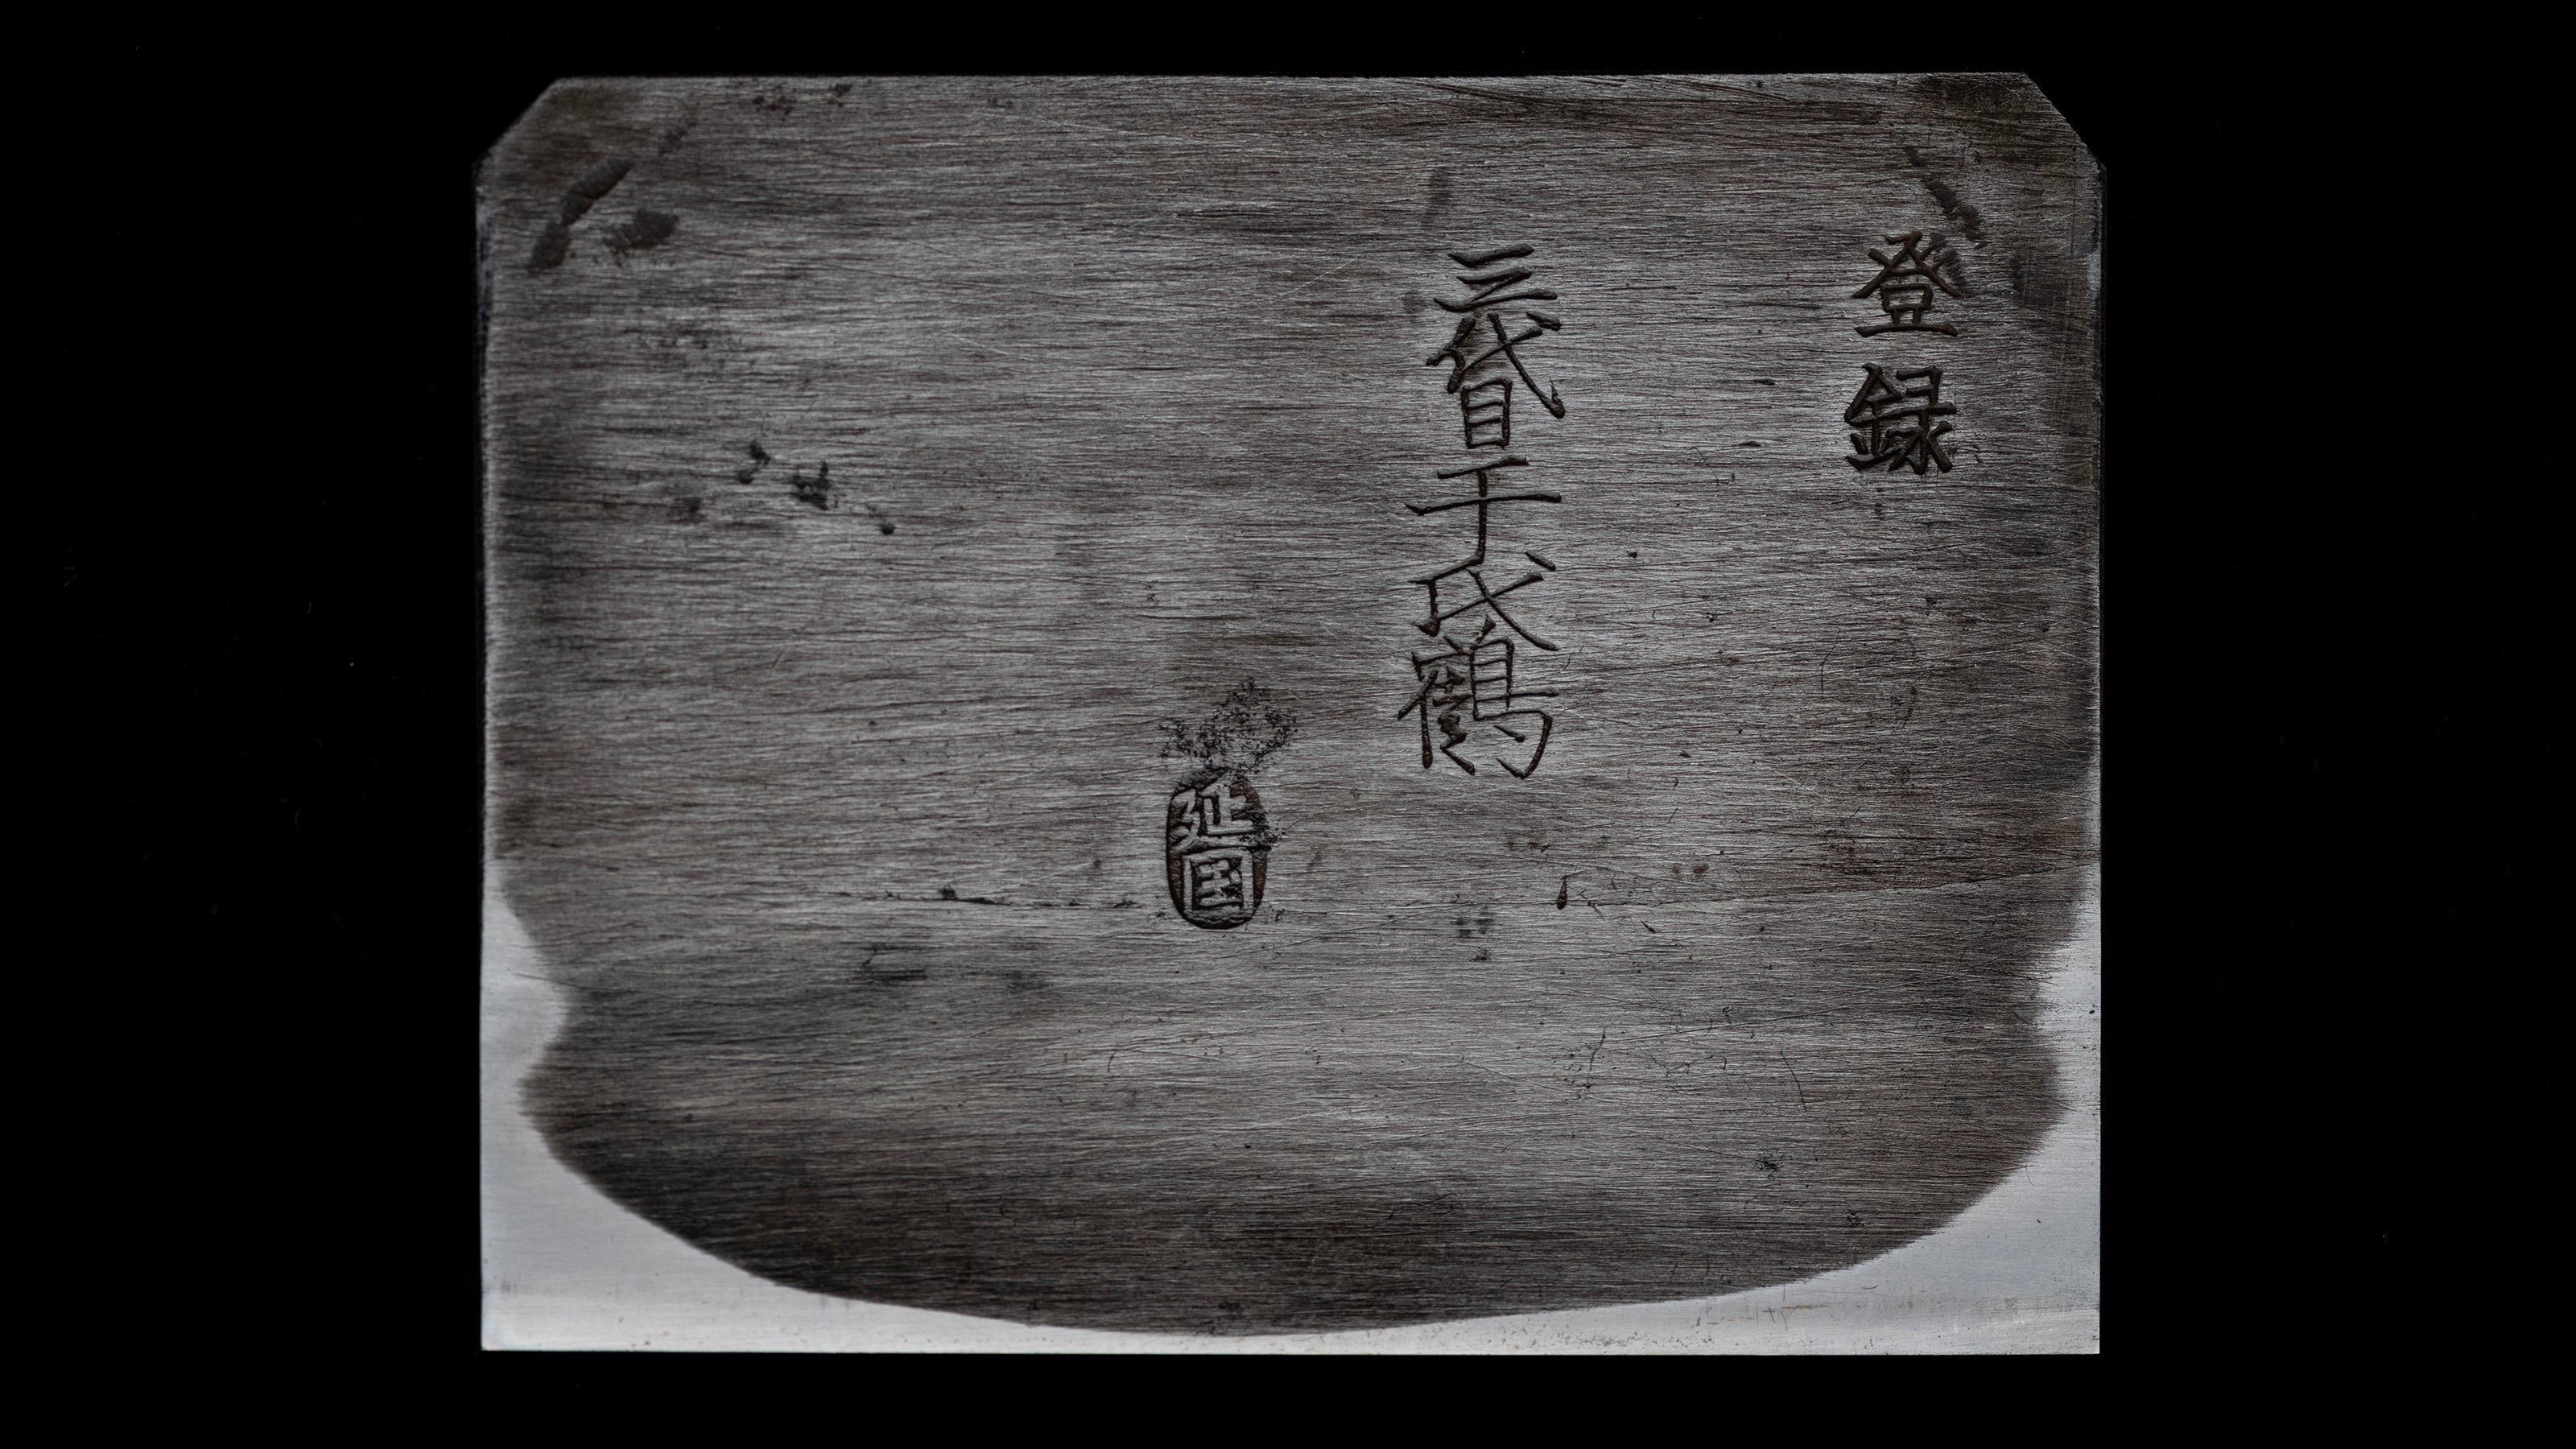 登録
三代目千代鶴
延国